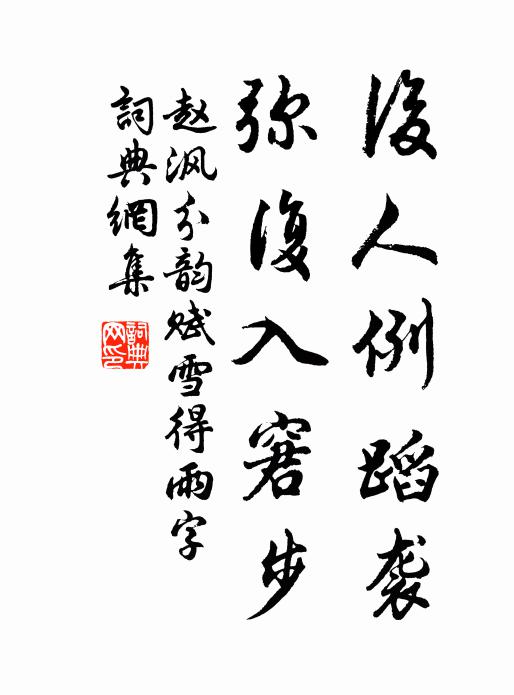 後人例蹈袭
弥復入窘步
赵沨分韵赋雪得雨字
詞典網集
詞典網印